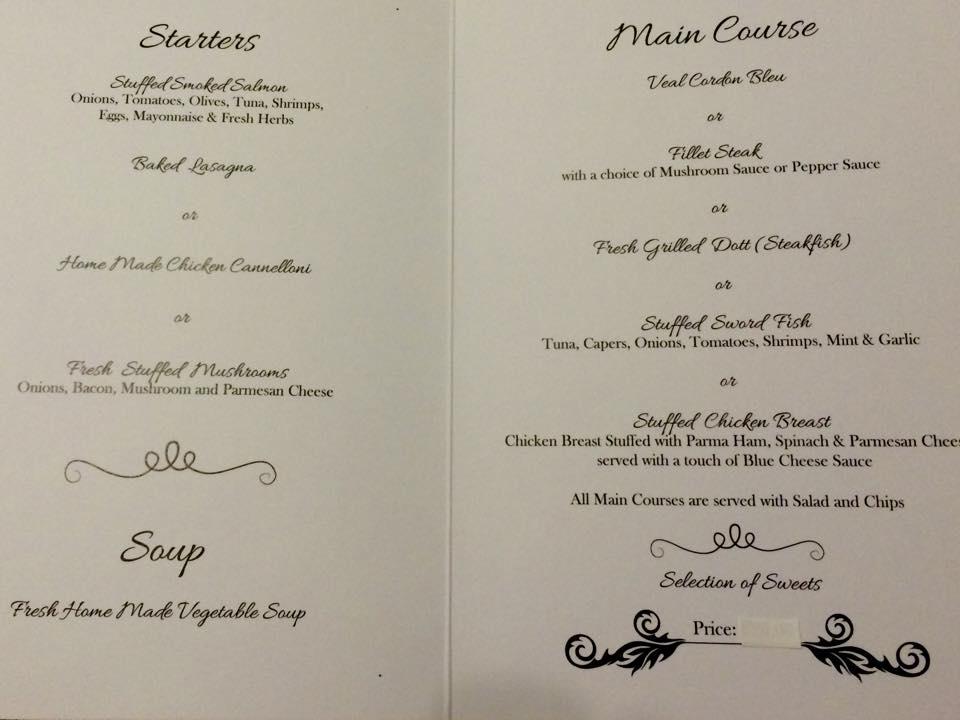 Starters
Stuffed Smoked Salmon
Onions, Tomatoes, Olives, Tuna, Shrimps,
Eggs, Mayonnaise & Fresh Herbs
Baked Lasagna
or
Home Made Chicken Cannelloni
or
Fresh Stuffed Mushrooms
Onions, Bacon, Mushroom and Parmesan Cheese
Soup
Fresh Home Made Vegetable Soup
Main Course
Veal Cordon Bleu
or
Fillet Steak
with a choice of Mushroom Sauce or Pepper Sauce
or
Fresh Grilled Dott (Steakfish)
or
Stuffed Sword Fish
Tuna, Capers, Onions, Tomatoes, Shrimps, Mint & Garlic
or
Stuffed Chicken Breast
Chicken Breast Stuffed with Parma Ham, Spinach & Parmesan Chees
served with a touch of Blue Cheese Sauce
All Main Courses are served with Salad and Chips
Selection of Sweets
Price: